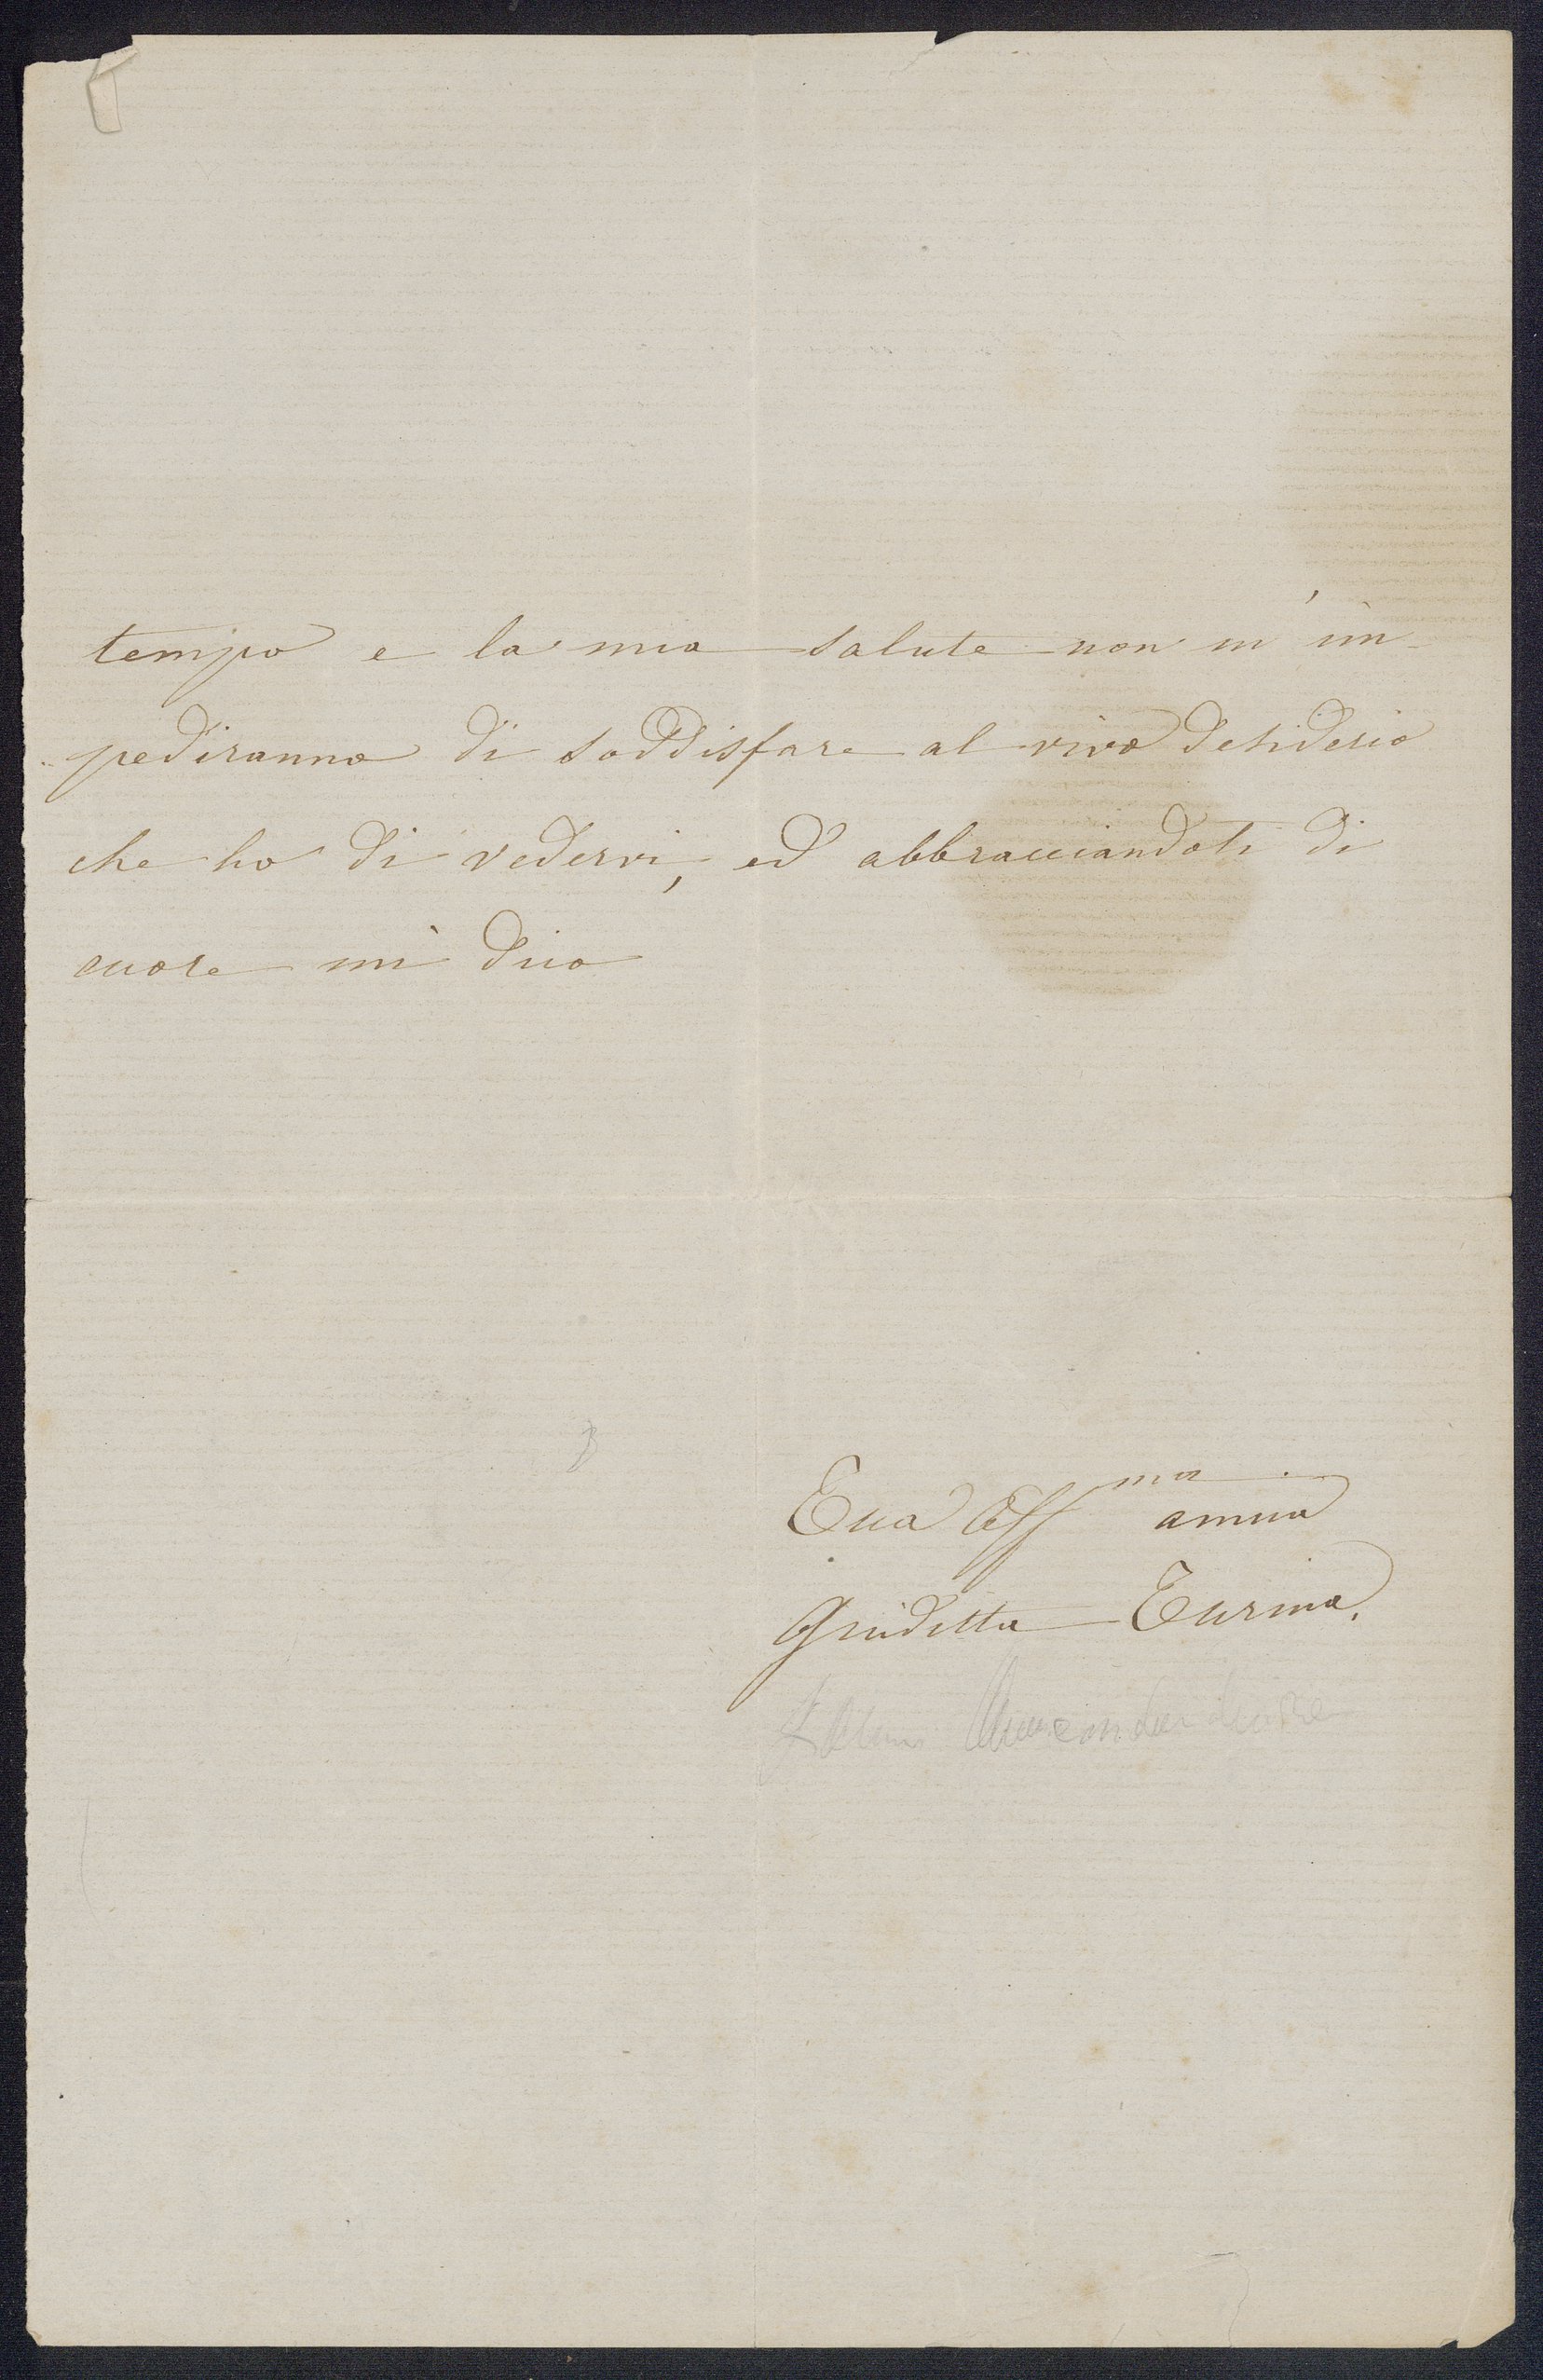 tempo e la mia salute non m'im-
pediranno di soddisfare al vivo desiderio
che ho di vedervi, ed abbracciandoti di
cuore mi dico
Tua Aff ma amica
Giuditta Turina.